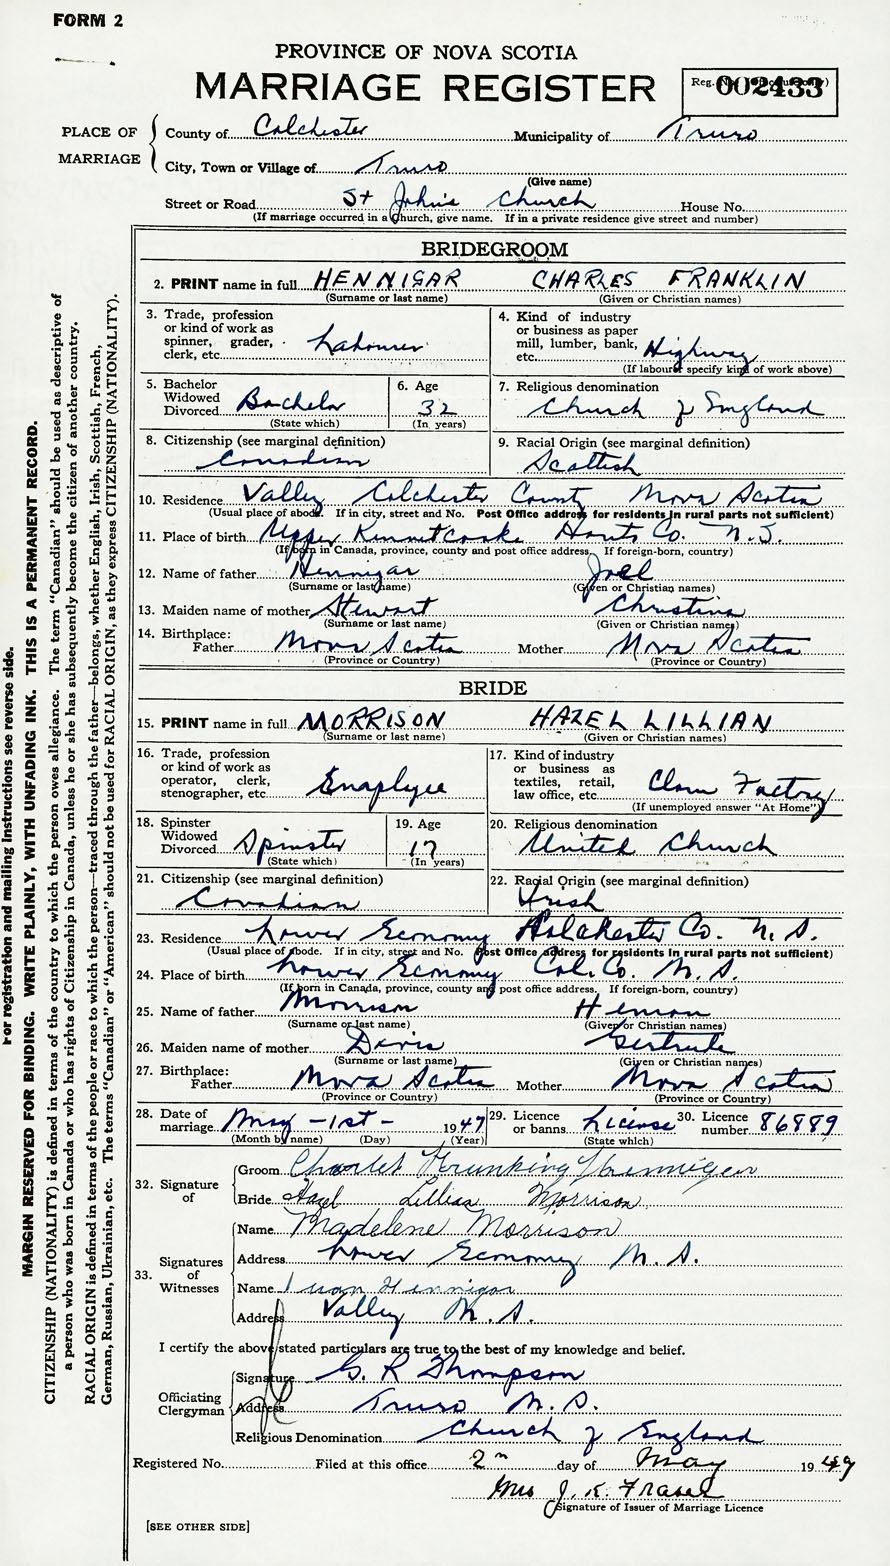 FORM 2
PROVINCE OF NOVA SCOTIA
MARRIAGE REGISTER
Reg. No. 002433
PLACE OF MARRIAGE
County of Colchester Municipality of Truro
City, Town or Village of Truro
(Give name)
Street or Road St John's Church House No.
(If marriage occurred in a Church, give name. If in a private residence give street and number)
BRIDEGROOM
2. PRINT name in full HENNIGAR CHARLES FRANKLIN
(Surname or last name) (Given or Christian names)
3. Trade, profession or kind of work as spinner, grader, clerk, etc. Labourer
4. Kind of industry or business as paper mill, lumber, bank, etc. Highway
(If labourer specify kind of work above)
5. Bachelor Widowed Divorced Bachelor
(State which)
6. Age 32
(In years)
7. Religious denomination Church of England
8. Citizenship (see marginal definition) Canadian
9. Racial Origin (see marginal definition) Scottish
10. Residence Valley Colchester County Nova Scotia
(Usual place of abode. If in city, street and No. Post Office address for residents in rural parts not sufficient)
11. Place of birth Upper Kennetcooke Hants Co. N.S.
(If born in Canada, province, county and post office address. If foreign-born, country)
12. Name of father Hennigar Joel
(Surname or last name) (Given or Christian names)
13. Maiden name of mother Stewart Christina
(Surname or last name) (Given or Christian names)
14. Birthplace: Father Nova Scotia Mother Nova Scotia
(Province or Country) (Province or Country)
BRIDE
15. PRINT name in full MORRISON HAZEL LILLIAN
(Surname or last name) (Given or Christian names)
16. Trade, profession or kind of work as operator, clerk, stenographer, etc. Employee
17. Kind of industry or business as textiles, retail, law office, etc. Clam Factory
(If unemployed answer "At Home")
18. Spinster Widowed Divorced Spinster
(State which)
19. Age 17
(In years)
20. Religious denomination United Church
21. Citizenship (see marginal definition) Canadian
22. Racial Origin (see marginal definition) Irish
23. Residence Lower Economy Colchester Co. N.S.
(Usual place of abode. If in city, street and No. Post Office address for residents in rural parts not sufficient)
24. Place of birth Lower Economy Col. Co. N.S.
(If born in Canada, province, county and post office address. If foreign-born, country)
25. Name of father Morrison
(Surname or last name) (Given or Christian names)
26. Maiden name of mother Davis Gertrude
(Surname or last name) (Given or Christian names)
27. Birthplace: Father Nova Scotia Mother Nova Scotia
(Province or Country) (Province or Country)
28. Date of marriage May - 1st - 1947
(Month by name) (Day) (Year)
29. Licence or banns License
(State which)
30. Licence number 86889
32. Signature of
Groom Charles Hennigar
Bride Hazel Lillian Morrison
33. Signatures of Witnesses
Name Madelene Morrison
Address Lower Economy N.S.
Name Hennigar
Address Valley N.S.
I certify the above stated particulars are true to the best of my knowledge and belief.
Officiating Clergyman
Signature G. R Thompson
Address Truro N.S.
Religious Denomination Church of England
Registered No. Filed at this office 2 day of May 1949
Mrs J. K. Fraser
Signature of Issuer of Marriage Licence
[SEE OTHER SIDE]
For registration and mailing instructions see reverse side.
MARGIN RESERVED FOR BINDING. WRITE PLAINLY, WITH UNFADING INK. THIS IS A PERMANENT RECORD.
CITIZENSHIP (NATIONALITY) is defined in terms of the country to which the person owes allegiance. The term "Canadian" should be used as descriptive of
a person who was born in Canada or who has rights of Citizenship in Canada, unless he or she has subsequently become the citizen of another country.
RACIAL ORIGIN is defined in terms of the people or race to which the person—traced through the father—belongs, whether English, Irish, Scottish, French,
German, Russian, Ukrainian, etc. The terms "Canadian" or "American" should not be used for RACIAL ORIGIN, as they express CITIZENSHIP (NATIONALITY).